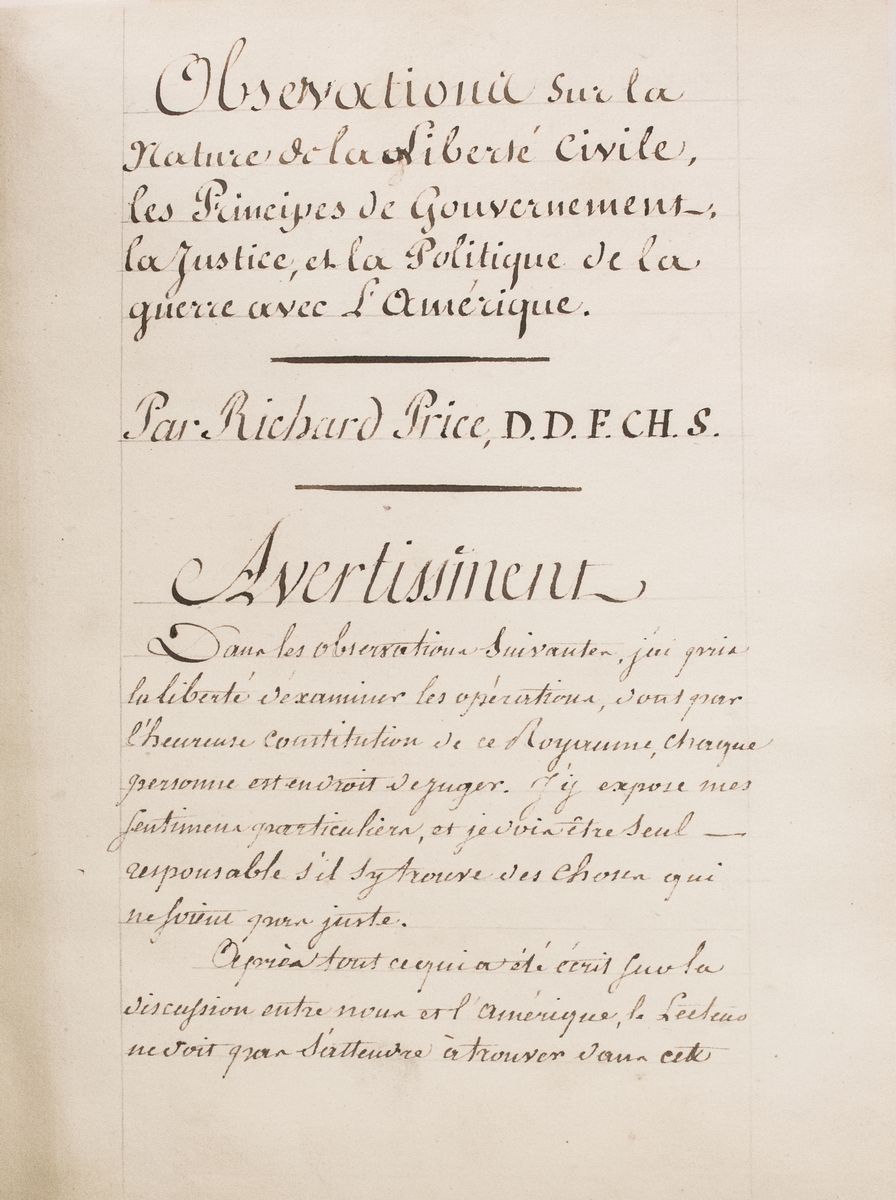 Observations sur la
Nature de la Liberté Civile,
les Principes de Gouvernement,
la Justice, et la Politique de la
guerre avec L'Amérique.
Par Richard Price, D. D. F. CH. S.
Avertissment
Dans les observations Suivantes, j'ai pris
la liberté d'examiner les opérations, dont par
l'heureuse constitution de ce Royaume, chaque
personne est en droit de juger. J'y expose mes
sentimens particuliers, et je dois être seul —
responsable s'il s'y trouve des choses qui
ne soient pas juste.
Après tout ce qui a été écrit sur la
discussion entre nous et l'Amérique, le Lecteur
ne doit pas s'attendre à trouver dans cette